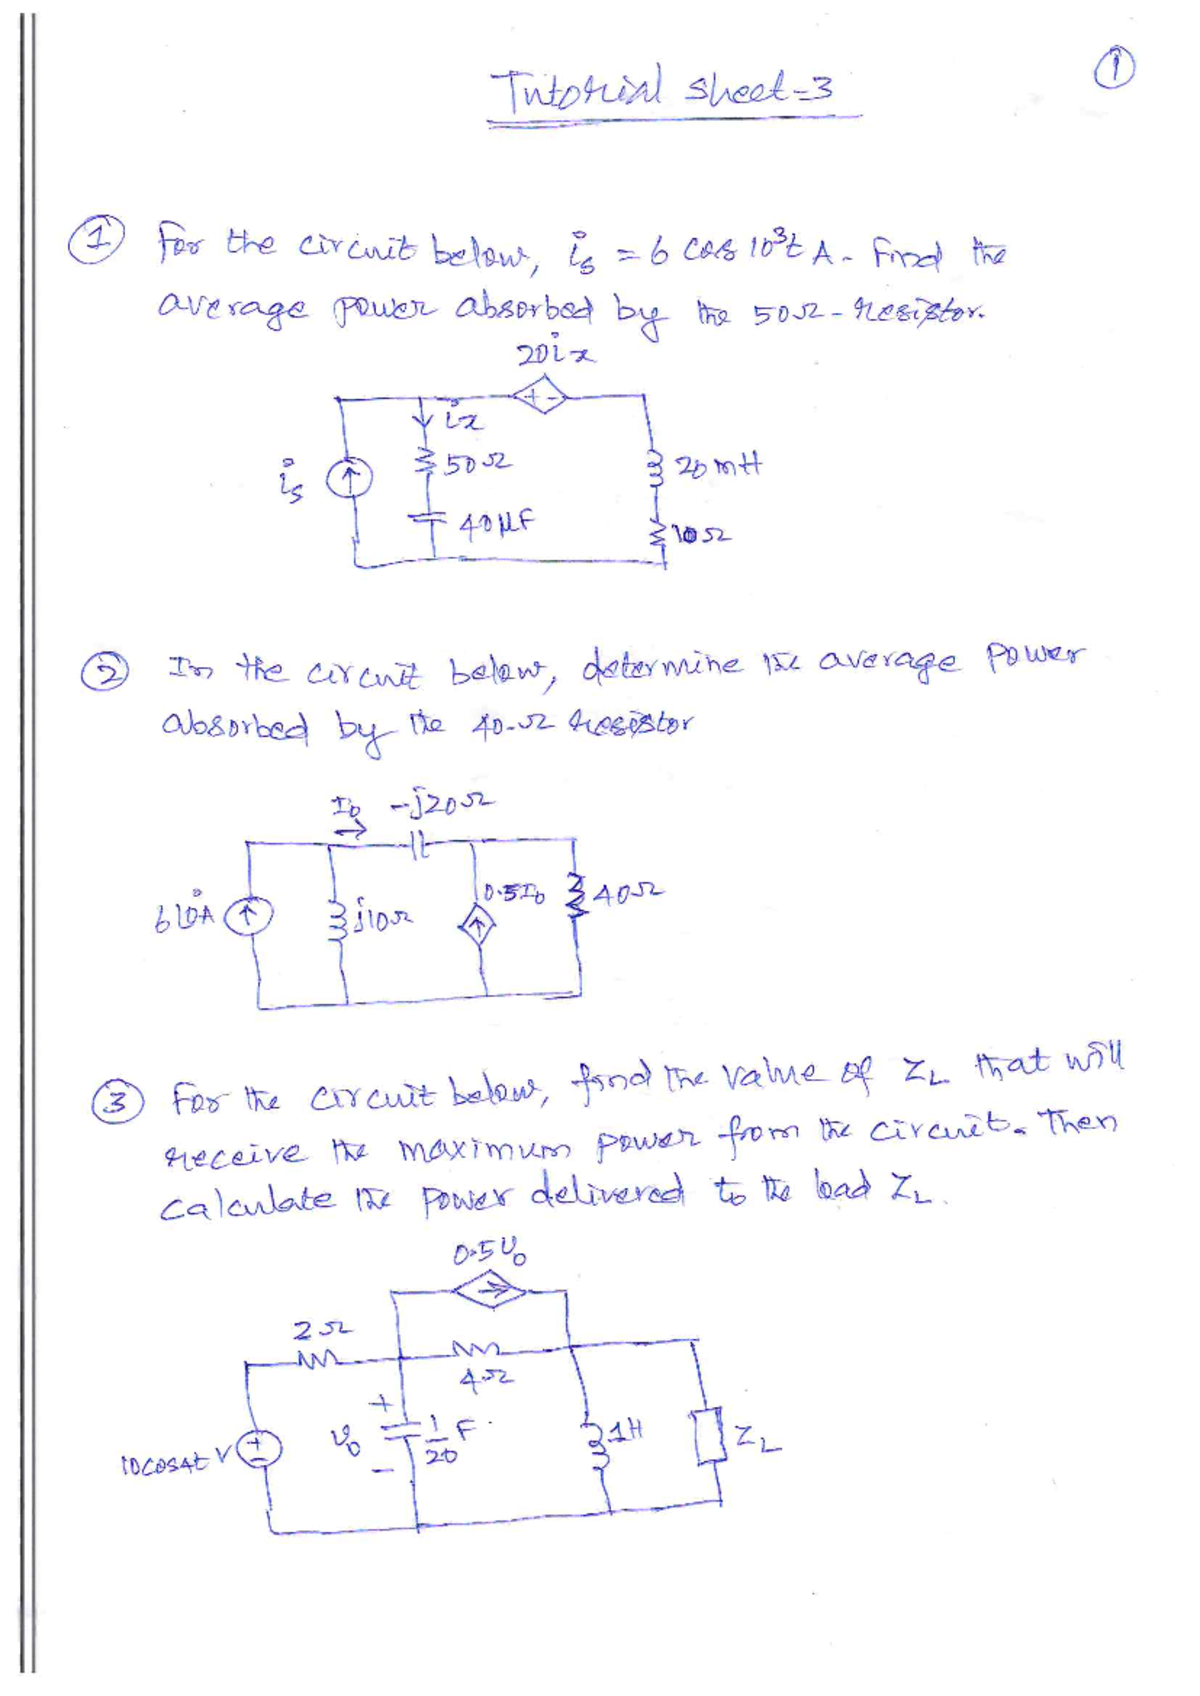 ①
Tutorial sheet-3
① For the circuit below, is = 6 cos 10³t A. Find the
average power absorbed by the 50Ω-resistor.
20ix
ix
is
50Ω
20mH
40µF
10Ω
② In the circuit below, determine the average power
absorbed by the 40-Ω resistor
Io -j20Ω
6∠0°A
j10Ω
0.5Io
40Ω
③ For the circuit below, find the value of ZL that will
receive the maximum power from the circuit. Then
calculate the power delivered to the load ZL.
0.5Vo
2Ω
4Ω
+
Vo
-
1/20 F
1H
ZL
10cos4t V